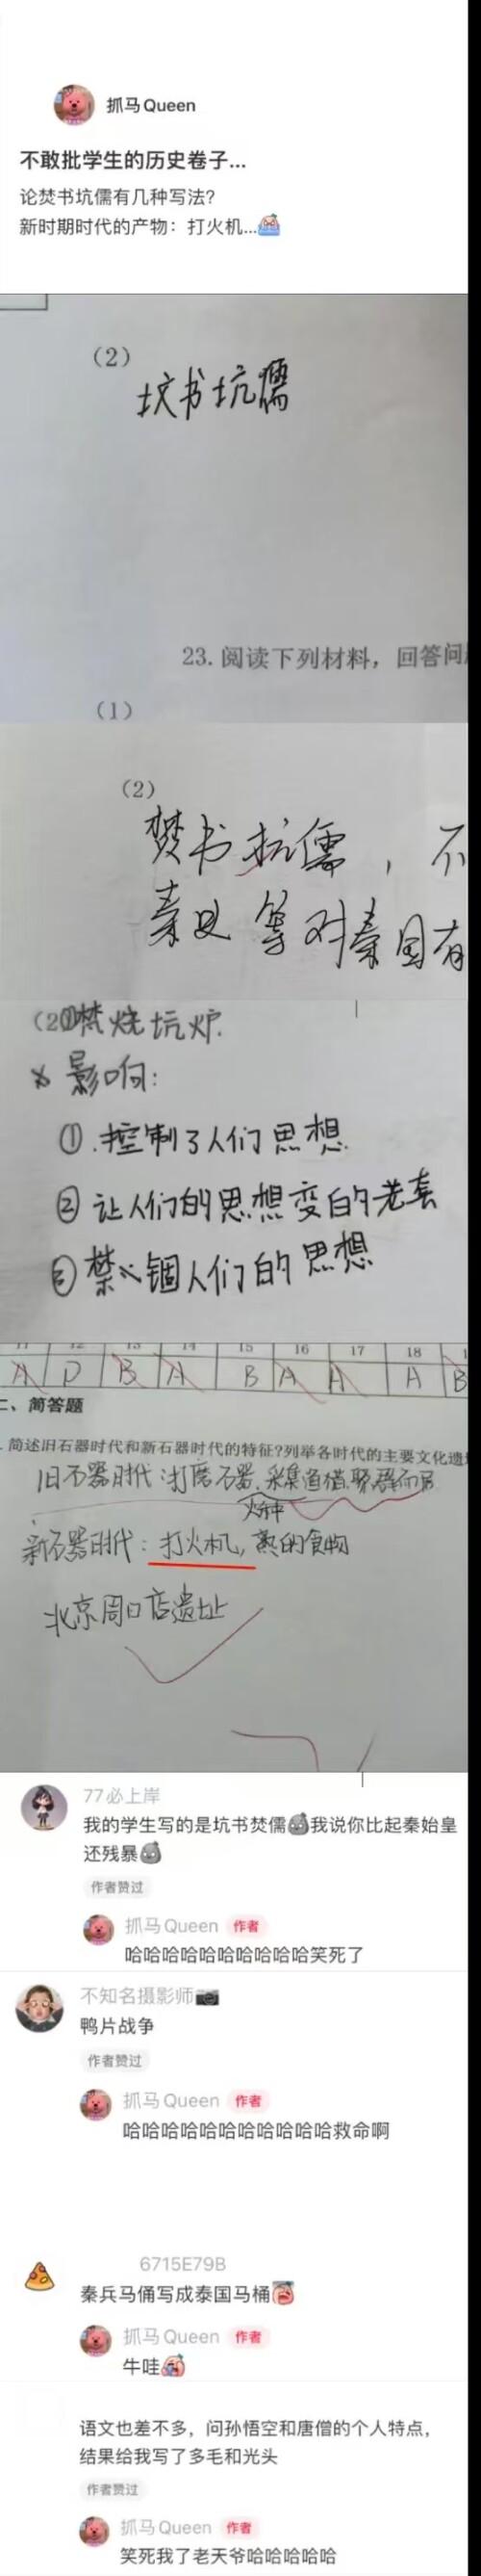 抓马Queen
不敢批学生的历史卷子...
论焚书坑儒有几种写法?
新时期时代的产物：打火机...
(2)
坟书坑儒
23.阅读下列材料，回答问
(1)
(2)
书抗儒，不
秦史等对秦国有
坑炉.
影响:
①.控制了人们思想
②让人们的思想变的老套
③禁锢人们的思想
12 13 14 15 16 17 18
A D B A B A A A B
二、简答题
简述旧石器时代和新石器时代的特征?列举各时代的主要文化遗
旧石器时代:打磨石器.采集直措.聚群而居
火种
新石器时代：打火机,熟的食物
北京周口店遗址
77必上岸
我的学生写的是坑书焚儒我说你比起秦始皇
还残暴
作者赞过
抓马Queen 作者
哈哈哈哈哈哈哈哈哈哈笑死了
不知名摄影师
鸭片战争
作者赞过
抓马Queen 作者
哈哈哈哈哈哈哈哈哈哈哈救命啊
6715E79B
秦兵马俑写成泰国马桶
抓马Queen 作者
牛哇
语文也差不多，问孙悟空和唐僧的个人特点，
结果给我写了多毛和光头
作者赞过
抓马Queen 作者
笑死我了老天爷哈哈哈哈哈